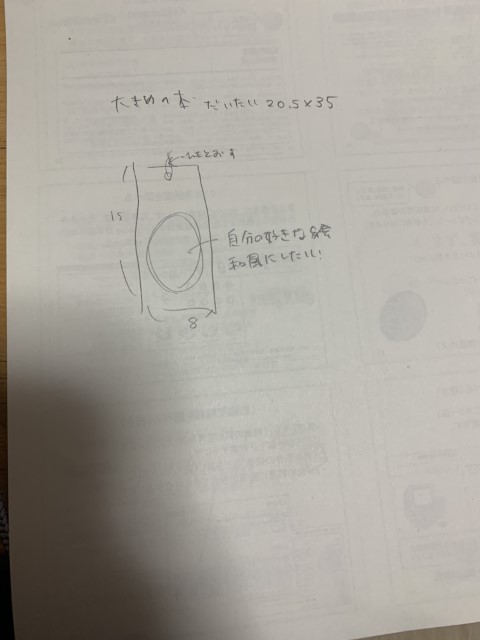 大きめの本 だいたい 20.5×35
ひもをとおす
15
自分の好きな絵
和風にしたい!
8